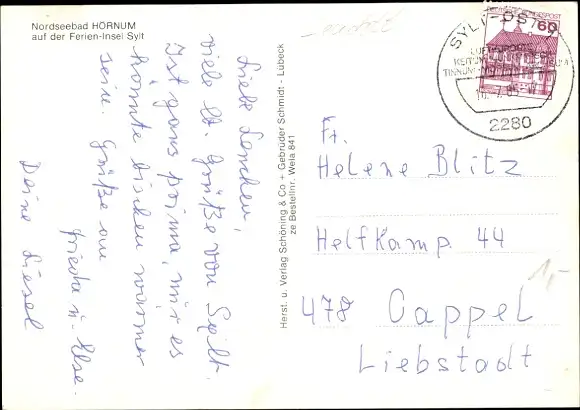 Nordseebad HÖRNUM
auf der Ferien-Insel Sylt
Liebe Lenchen,
viele lb. Grüße von Sylt.
Ist ganz prima, nur es
könnte bischen wärmer
sein. Grüße an
Frieda u. Else.
Deine Liesel
Herst. u. Verlag Schöning & Co + Gebrüder Schmidt - Lübeck
ze Bestellnr. Wela 841
SYLT-OST
60
2280
Fr.
Helene Blitz
Helfkamp 44
478 Cappel
Liebstadt
1,-